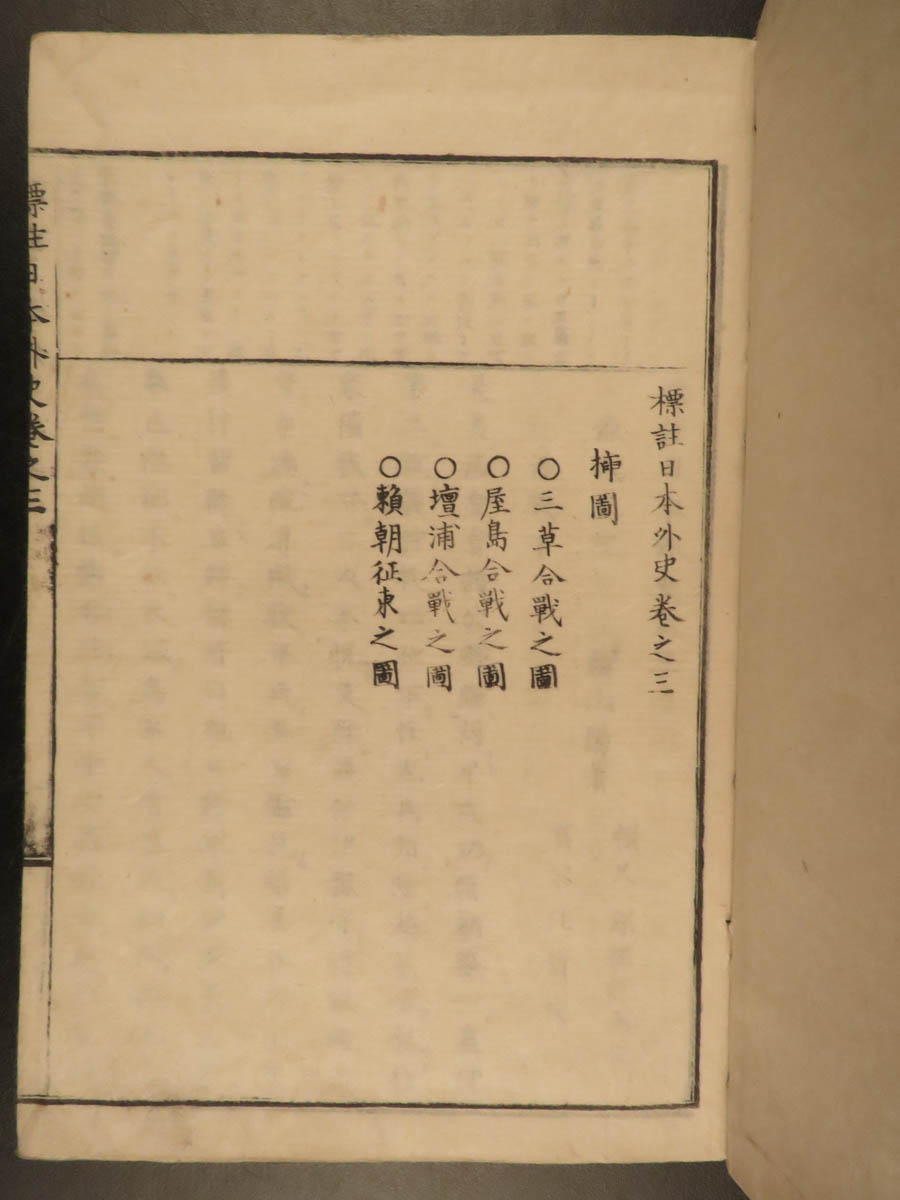 標註日本外史卷之三
揷圖
○三草合戰之圖
○屋島合戰之圖
○壇浦合戰之圖
○賴朝征東之圖
標註日本外史卷之三